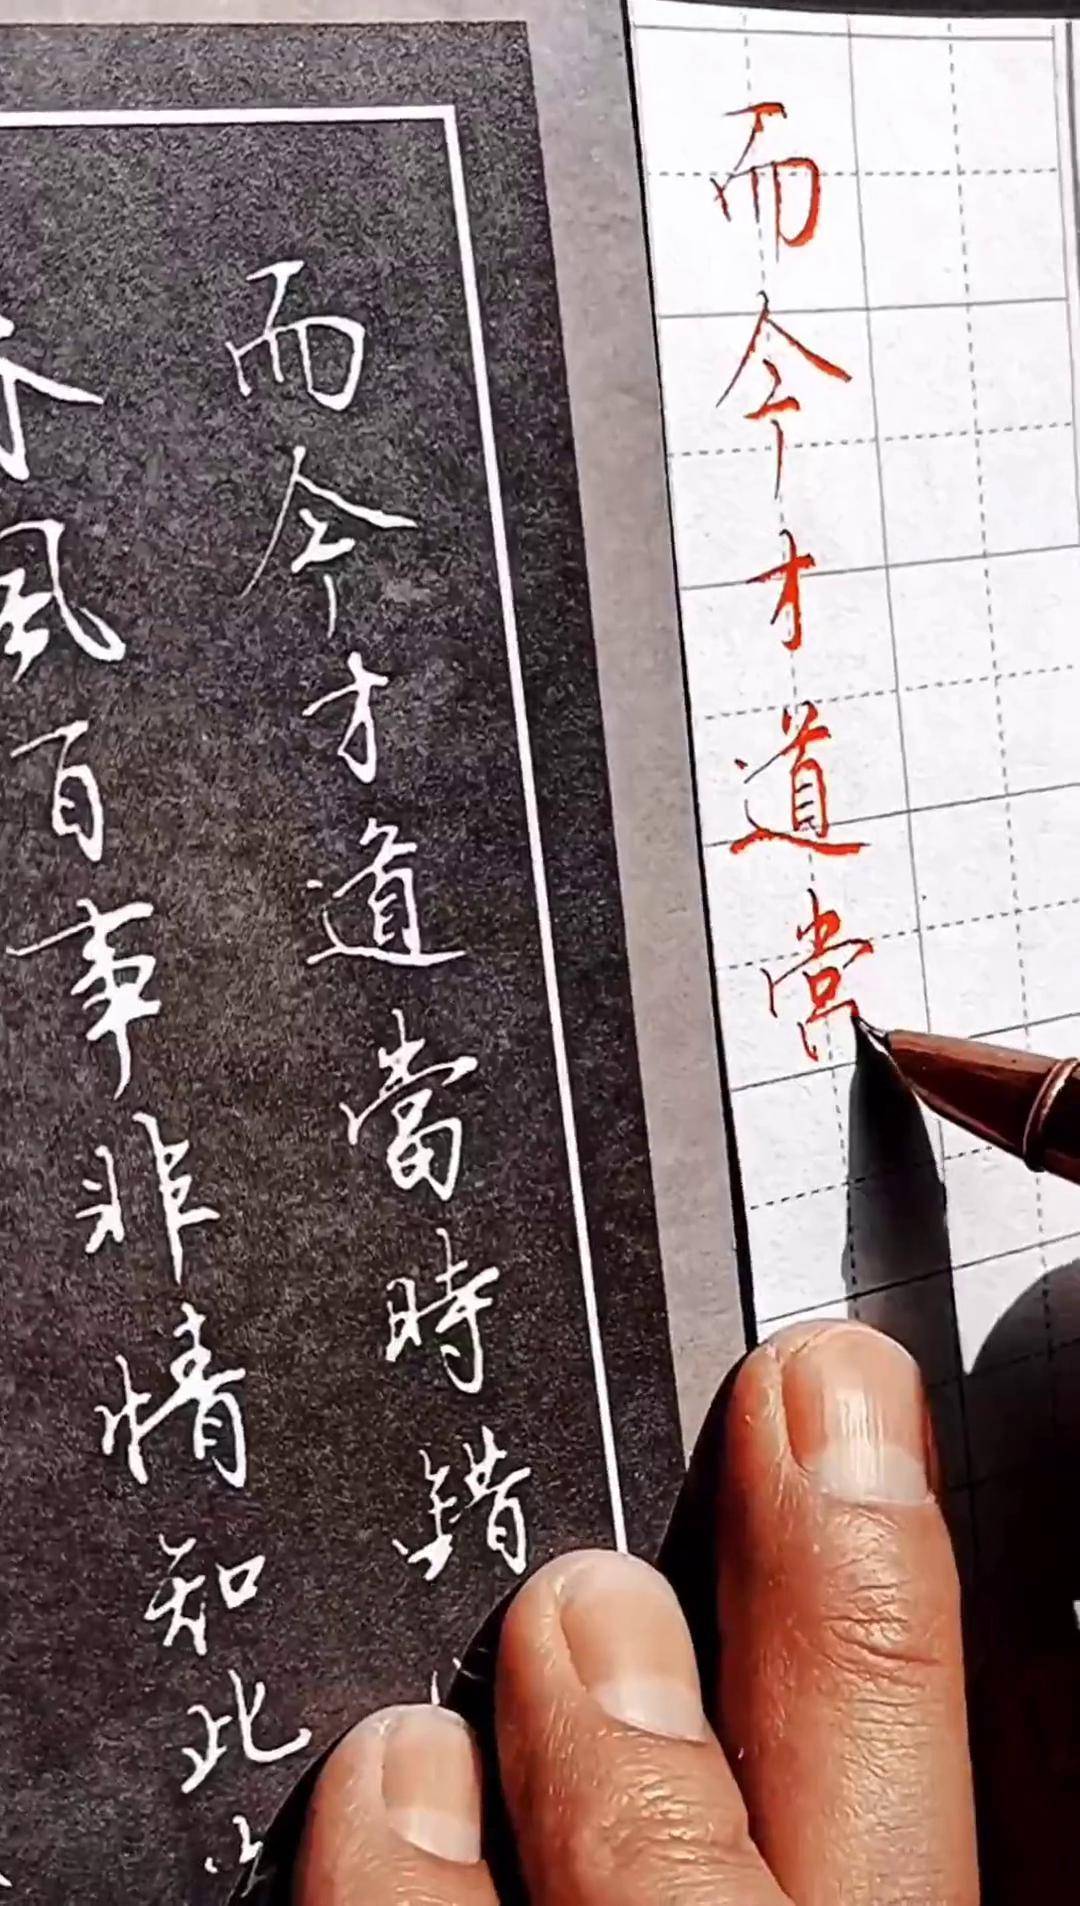 而今才道當
而今才道當時錯
風百事非情知此